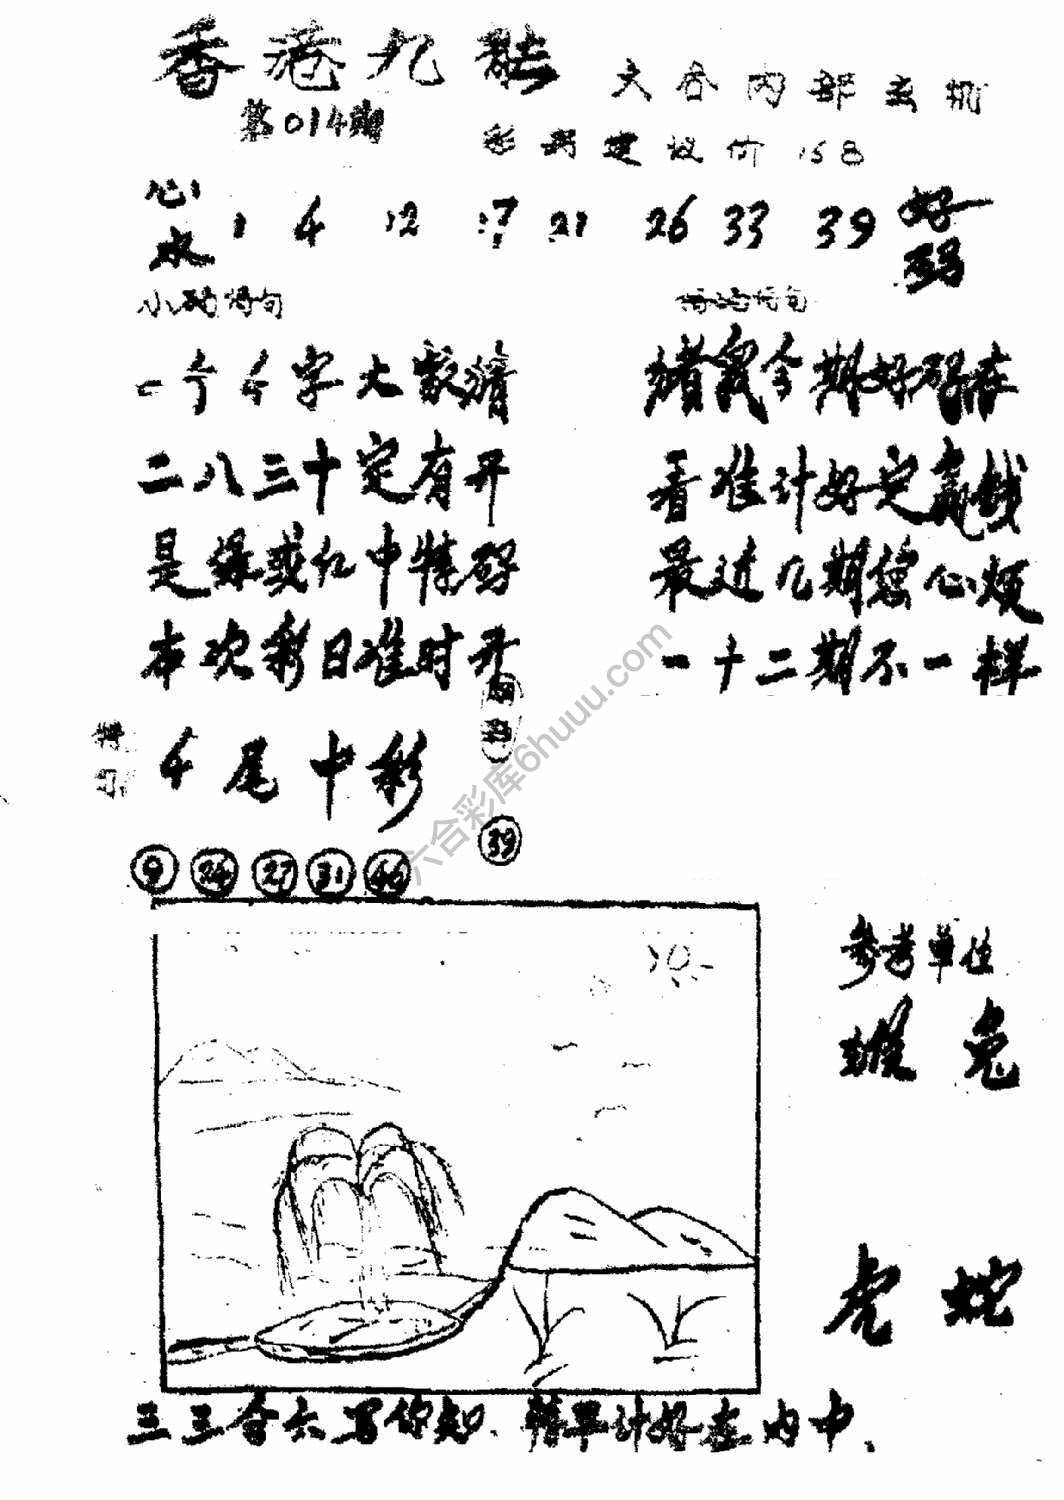 香港九龍
六合内部玄机
第014期
彩民建议价 168
心水 1 4 12 17 21 26 33 39 好码
小码诗句
一个千字大家猜
二八三十定有开
是绿或红中特码
本次彩日准时开
猪鼠今期好码在
看准计好定赢钱
最近几期您心烦
一十二期不一样
4尾中彩
9 24 27 31 46 39
六合彩库6huuu.com
参考单位
猴 兔
虎 蛇
三三合六写你知、精早计好在内中、